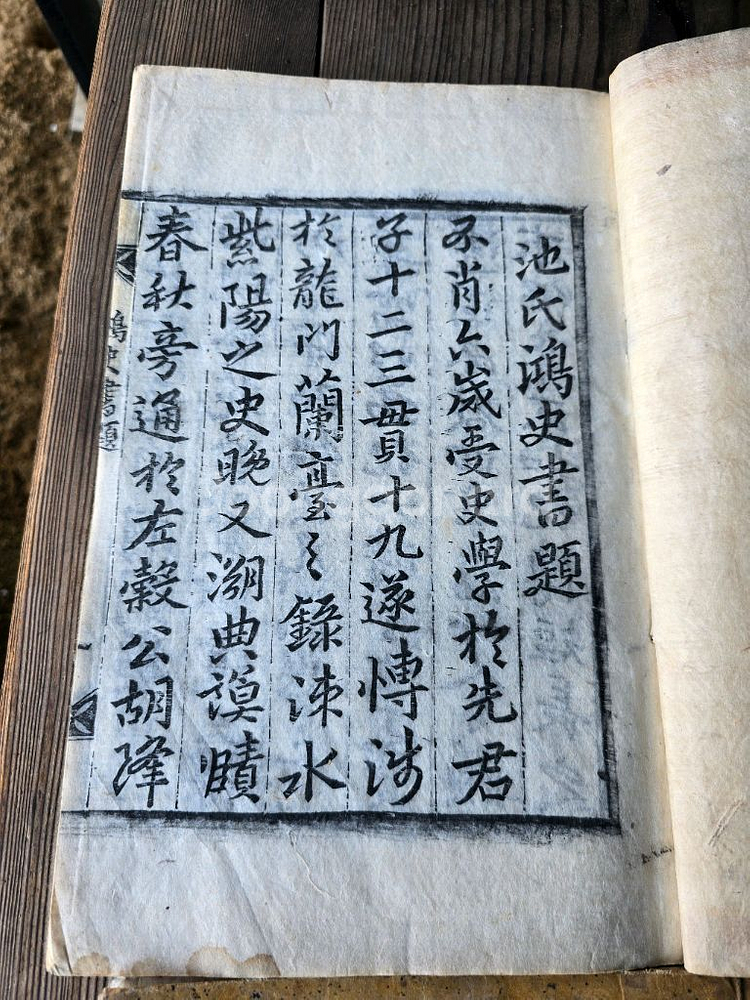 池氏鴻史書題
不肖六歲受史學於先君
子十二三毌貫十九遂愽涉
於龍門蘭臺之錄涑水
紫陽之史晩又溯典謨賾
春秋旁通於左糓公胡降
鴻史書題